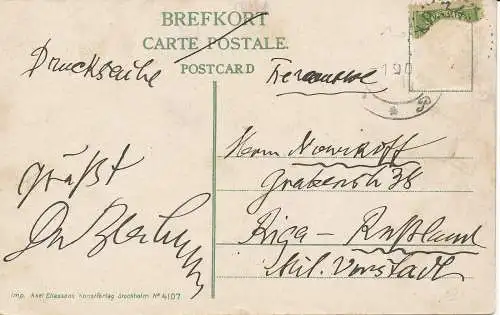 BREFKORT
CARTE POSTALE.
POSTCARD
Drucksache
190
Herrn Nowikoff
Grabenstr 38
Riga - Rußland
Mit. Vorstadt
grüßt
Imp. Axel Eliassons Konstförlag Stockholm No 4107